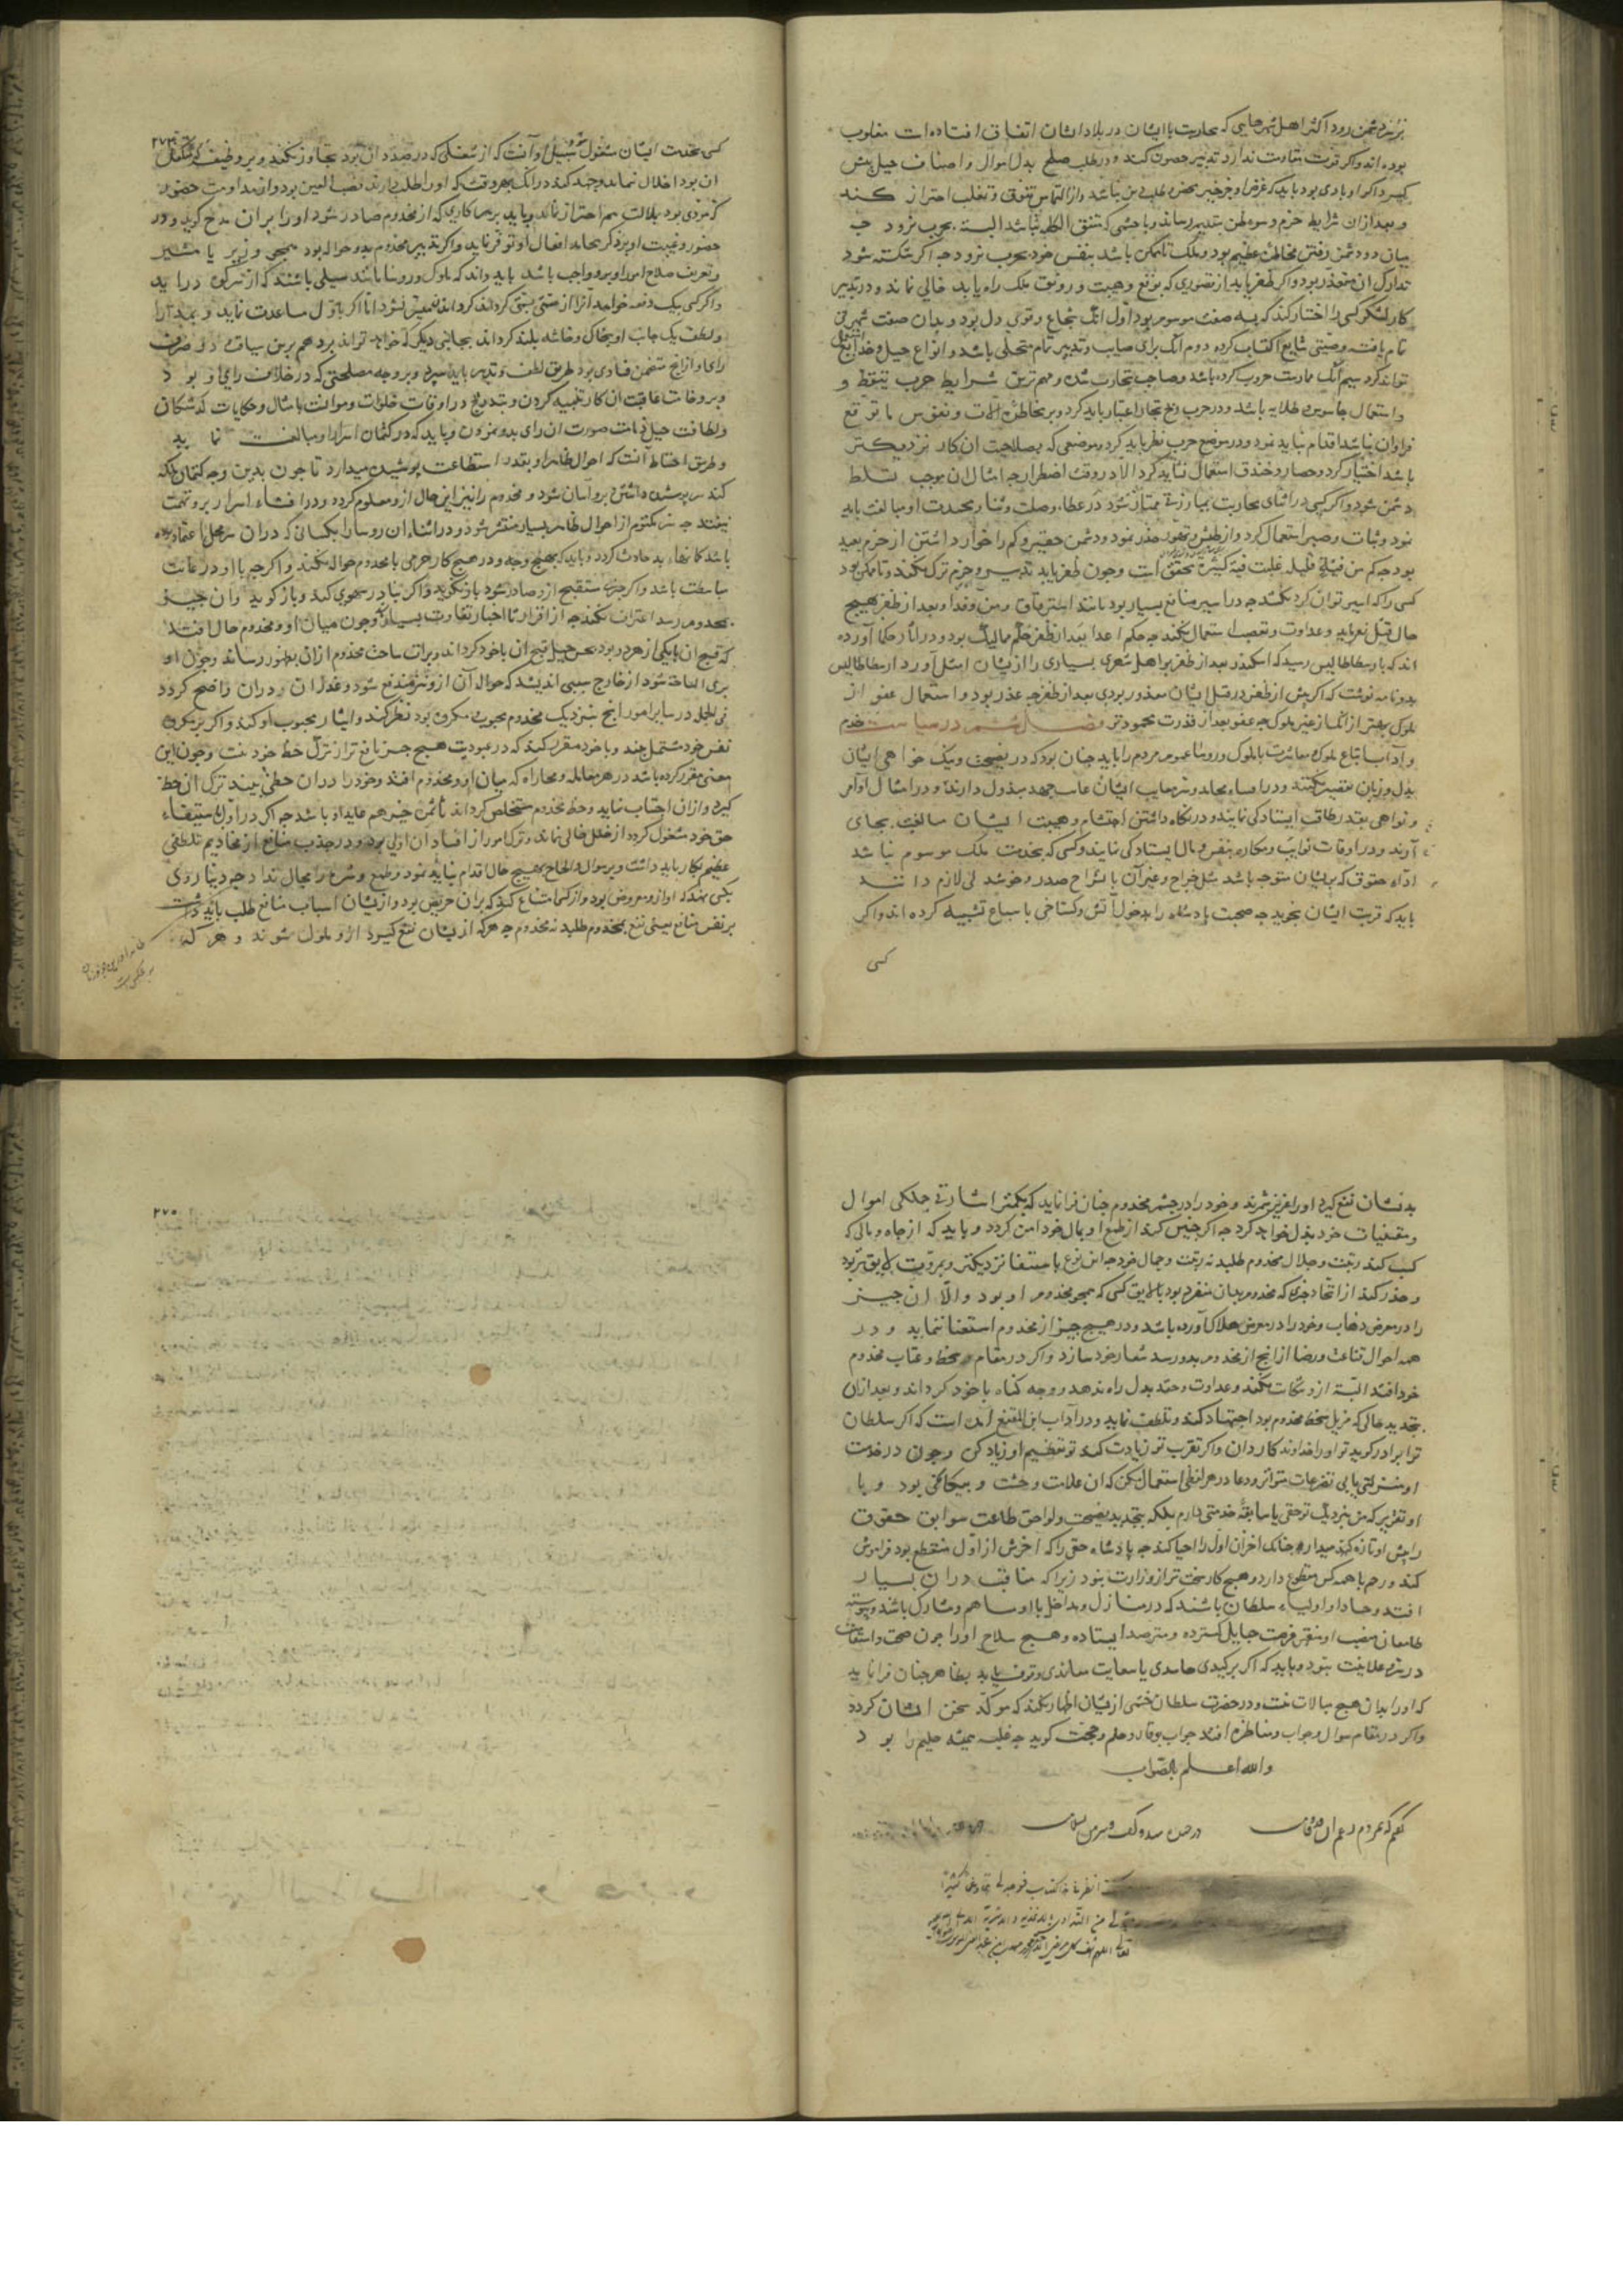 بزند دشمن رود اکثر اهل شهرهایی که محاربت با ایشان در بلاد ایشان اتفاق افتاده است مغلوب
بوده اند واکر قوت مقاومت ندارد تدبیر حصون کند ودر طلب صلح بذل اموال واصناف حیل پیش
کیرد واکر او بادی بود باید که غرض او جز خیر محض وطلب دین نباشد واز التماس تفوق و تغلب احتراز کند
و بعد از ان شرایط حزم و سوء ظن بتقدیم رساند و با حشمی که متفق الکلمه نباشد البته بحرب نرود چه
میان دو دشمن رفتن مخاطرۀ عظیم بود و ملک تا ممکن باشد بنفس خود بحرب نرود چه اکر شکسته شود
تدارک ان متعذر بود واکر ظفر یابد از تصوری که بوقع وهیبت و رونق ملک راه یابد خالی نماند و در تدبیر
کار لشکر کسی را اختیار کند که بسه صفت موسوم بود اول انک شجاع و قوی دل بود و بدان صفت شهرتی
تمام یافته وصیتی شایع اکتساب کرده دوم آنک برای صایب و تدبیر تمام متحلی باشد و انواع حیل و خدایع استعمال
تواند کرد سیم آنک ممارست حروب کرده باشد و صاحب تجارب شده و مهم ترین شرایط حرب تیقظ و
واستعمال جاسوس و طلایه باشد و در حرب ربح تجار اعتبار باید کرد و بر مخاطرۀ آلات و نفوس تا توقع
فراوان نباشد اقدام نباید نمود و در موضع حرب نظر باید کرد و موضعی که بصلاحیت ان کار نزدیکتر
باشد اختیار کرد و حصار و خندق استعمال نباید کرد الا در وقت اضطرار چه امثال ان موجب تسلط
دشمن شود و اکر کسی در اثنای محاربت بمبارزتی ممتاز شود در عطا و صلت وثنا و محمدت او مبالغت باید
نمود وثبات وصبر استعمال کرد واز طیش و تهور حذر نمود و دشمن حقیر و کم را خوار داشتن از حزم بعید
بود چه کم من فئة قلیلة غلبت فئة کثیرة محقق است وچون ظفر یابد تدبیر و حزم ترک نکند و تا ممکن بود
کسی را که اسیر توان کرد نکشد چه در اسیر منافع بسیار بود مانند استرقاق ومن وفدا وبعد از ظفر بهیچ
حال قتل نفرماید وعداوت و تعصب استعمال نکند چه حکم اعدا بعد از ظفر حکم ممالیک بود ودر آثار حکما آورده
اند که بارسطاطالیس رسید که اسکندر بعد از ظفر بر اهل شهری بسیاری را از یشان بقتل آورد ارسطاطالیس
بدو نامه نوشت که اکر پیش از ظفر در قتل ایشان معذور بودی بعد از ظفر چه عذر بود و استعمال عفو از
ملوک بهتر از انک از غیر ملوک چه عفو بعد از قدرت محمودتر فصل ششم در سیاست خدم
و آداب اتباع ملوک معاشرت با ملوک و رؤسا عموم مردم را باید چنان بود که در نصیحت و نیک خواهی ایشان
بدل و زبان تقصیر نکنند و در افشاء محامد و ستر معایب ایشان غایت جهد مبذول دارند و در امتثال اوامر
و نواهی بقدر طاقت ایستادکی نمایند و در نکاه داشتن احتشام و هیبت ایشان مبالغت بجای
آرند و در اوقات نوایب و مکاره بنفس و مال ایستادکی نمایند و کسی که بخدمت ملک موسوم نباشد
اداء حقوق که بریشان متوجه باشد مثل خراج و غیر آن بانشراح صدر و خوش دلی لازم دانند
باید که قربت ایشان نجوید چه صحبت پادشاه را بدخول آتش و کستاخی با سباع تشبیه کرده اند واکر
کسی
کسی بخدمت ایشان مشغول شود سبیل او آنست که از شغلی که در صدد ان بود تجاوز نکند و بر وظیفۀ که متکفل
ان بود اخلال ننماید و جهد کند در انک بهر وقت که او را طلب دارند نصب العین بود واز مداومت حضور
که مودی بود بملالت هم احتراز نماید و باید بر هر کاری که از مخدوم صادر شود او را بران مدح کوید و در
حضور و غیبت او بر ذکر محامد افعال او توفر نماید و اکر تدبیر مخدوم بدو حواله بود همچو وزیر یا مشیر
و تعریف صلاح امور او برو واجب باشد باید داند که ملوک و رؤسا مانند سیلی باشند که از سر کوه دراید
واکر کسی یک دفعه خواهد آنرا از سمتی بسمتی کرداند کرداند میسر نشود اما اکر باول مساعدت نماید و بمدارا
و لطف یک جانب او بخاک و خاشه بلند کرداند بجانبی دیکر که خواهد تواند برد هم برین سیاقت در صرف
رای او از انچ متضمن فسادی بود طریق لطف و تدبیر باید سپرد و بر وجه مصلحتی که در خلاف رای او بود
و بر وخامت عاقبت ان کار تنبیه کردن و بتدریج در اوقات خلوات و موانست بامثال و حکایات کذشتکان
و لطافت حیل ذمامت صورت ان رای بدو نمودن و باید که در کتمان اسرار او مبالغت نماید
و طریق احتیاط آنست که احوال ظاهر او بقدر استطاعت پوشیده میدارد تا چون بدین وجه کتمان ملکه
کند سر پوشیده داشتن برو آسان شود و مخدوم را نیز این حال ازو معلوم کردد و در افشاء اسرار برو تهمت
نیفتد چه سر مکتوم از احوال ظاهر بسیار منتشر شود و در اثناء ان رؤسا را بکسانی که دران سر محل اعتماد بوده
باشد کمانهاء بد حادث کردد و باید که بهیچ وجه و در هیچ کار جرمی با مخدوم حواله نکند و اکر چه با او در غایت
مباسطت باشد و اکر چیزی مستقبح ازو صادر شود باز نکوید و اکر نیاز سهوی کند و باز کوید وان چیز
بمخدوم رسد اعتراف نکند چه از اقرار تا اخبار تفاوت بسیار است و چون میان او و مخدوم حالی افتد
که قبح ان بایکی از هر دو بود بحسن حیل قبح ان باخود کرداند و برات ساحت مخدوم ازان بظهور رساند و چون او
بری الساحه شود از خارج سببی اندیشد که حواله آن ازو نیز مندفع شود و عذر ان دران واضح کردد
فی الجمله در سایر امور انچ بنزدیک مخدوم محبوب و مکروه بود نظر کند و ایثار محبوب او کند و اکر بر مکروه
نفس خود مشتمل بیند و باخود مقرر کند که در عبودیت هیچ چیز نافع تر از ترک حظ خود نیست و چون این
معنی مقرر کرده باشد در هر معامله و مجاراه که میان او و مخدوم افتد و خود را دران حظی بیند ترک ان حظ
کیرد و ازان اجتناب نماید و حظ مخدوم مستخلص کرداند تا ثمن خیر هم عاید او باشد چه اکر در اول باستیفاء
حق خود مشغول کردد از خلل خالی نماند و ترک امور از افساد ان اولی بود و در جذب منافع از مخادیم تلطفی
عظیم بکار باید داشت و بر سوال و الحاح بهیچ حال اقدام نباید نمود و طمع و شره را مجال نداد چه دنیا روی
بکسی نهد که او ازو معروض بود و از کسی امتناع کند که بران حریص بود و از یشان اسباب منافع طلب باید داشت
بر نفس منافع یعنی نفع بمخدوم طلبد نه بخدوم چه هرکه از یشان نفع کیرد ازو ملول شوند و هرکه
۲۷۵
بدیشان نفع کیرد او را عزیز شمرند و خود را در چشم مخدوم چنان فرا نماید که بکمتر اشارتی جملکی اموال
و مقتنیات خود بذل خواهد کرد چه اکر چنین کند از طمع او بمال خود امن کردد و باید که از جاه و مالی که
کسب کند زینت و جلال مخدوم طلبد نه زینت و جمال خود چه این نوع باستبقا نزدیکتر و بمروت لایق تر بود
و حذر کند از اتخاذ چیزی که مخدوم بدان منفرد بود یا لایق کسی که همچو مخدوم او بود والا ان چیز
را در معرض ذهاب و خود را در معرض هلاک آورده باشد و در هیچ چیز از مخدوم استغنا ننماید و در
همه احوال قناعت و رضا از انچ از مخدوم بدو رسد شعار خود سازد و اکر در مقام سخط و عتاب مخدوم
خود افتد البته ازو شکایت نکند و عداوت و حقد بدل راه ندهد و وجه کناه با خود کرداند و بعد ازان
بتجدید حالی که مزیل سخط مخدوم بود اجتهاد کند و تلطف نماید و در آداب ابن المقفع آمده است که اکر سلطان
ترا برادر کوید تو او را خداوندکار دان و اکر تقرب تو زیادت کند تو تعظیم او زیاد کن و چون در خدمت
او منزلتی یابی تضرعات متواتر و دعا در هر لفظی استعمال مکن که ان علامت وحشت و بیکانکی بود و با
او تقریر که من بنزدیک تو حقی یا سابقۀ خدمتی دارم بلکه بتجدید نصیحت و لواحق طاعت سوابق حقوق
را پیش او تازه کند میدارد چنانک اخر آن اول را احیا کند چه پادشاه حقی را که اخرش از اول منقطع بود فراموش
کند و رحم با همه کس مقطوع دارد و هیچ کار سخت تر از وزارت نبود زیرا که منافست دران بسیار
افتد و حساد او اولیاء سلطان باشند که در منازل و مداخل با او مساهم و مشارک باشند و پیوسته
طامعان منصب او منتهز فرصت حبایل کسترده و مترصد ایستاده و هیچ سلاح او را چون صحت و استقامت
در سر و علانیت نبود و باید که اکر بر کیدی حاسدی یا سعایت معاندی وقوف یابد بظاهر چنان فرا نماید
که او را بدان هیچ مبالات نیست و در حضرت سلطان خشمی از یشان اظهار نکند که موکد سخن ایشان کردد
واکر در مقام سوال و جواب و مناظره افتد جواب بوقار و حلم و حجت کوید چه غلبه همیشه حلیم را بود
والله اعلم بالصواب